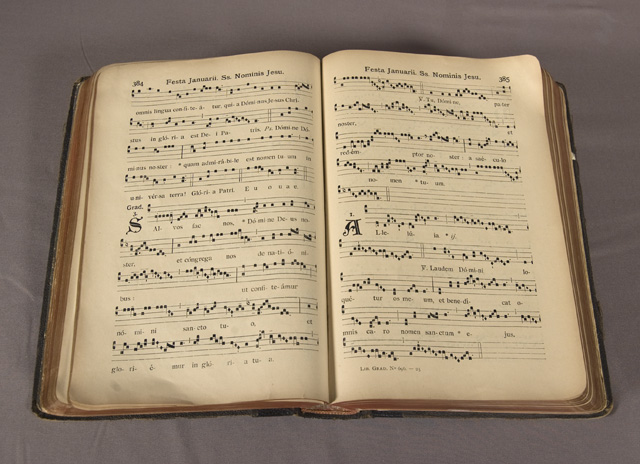 384
Festa Januarii. Ss. Nominis Jesu.
omnis lingua confi-te- á- tur, qui- a Dómi nus Je-sus Chri-
stus in gló- ri- a est De- i Pa- tris. Ps. Dómi ne Dó-
mi-nus no-ster : * quam admi-rá-bi-le est nomen tu- um in
u ni- vér-sa terra! Gló-ri- a Patri. E u o u a e.
Grad.
S Al- vos fac nos, * Dó mi ne De- us no-
ster, et cóngrega nos de na-ti- ó- ni-
bus : ut confi- te- ámur
nó- mi- ni san-cto tu- o, et
glo- ri- é- mur in gló- ri- a tu- a.
Festa Januarii. Ss. Nominis Jesu.
385
V. Tu, Dómi- ne, pa- ter
noster, et
red-ém- ptor no- ster : a sǽ- cu-lo
no- men * tu- um.
1.
A L-le- lú- ia * ij.
V. Laudem Dó-mi- ni lo-
qué- tur os me- um, et bene-di- cat o-
mnis ca- ro nomen san-ctum * e- jus.
Lib. Grad.